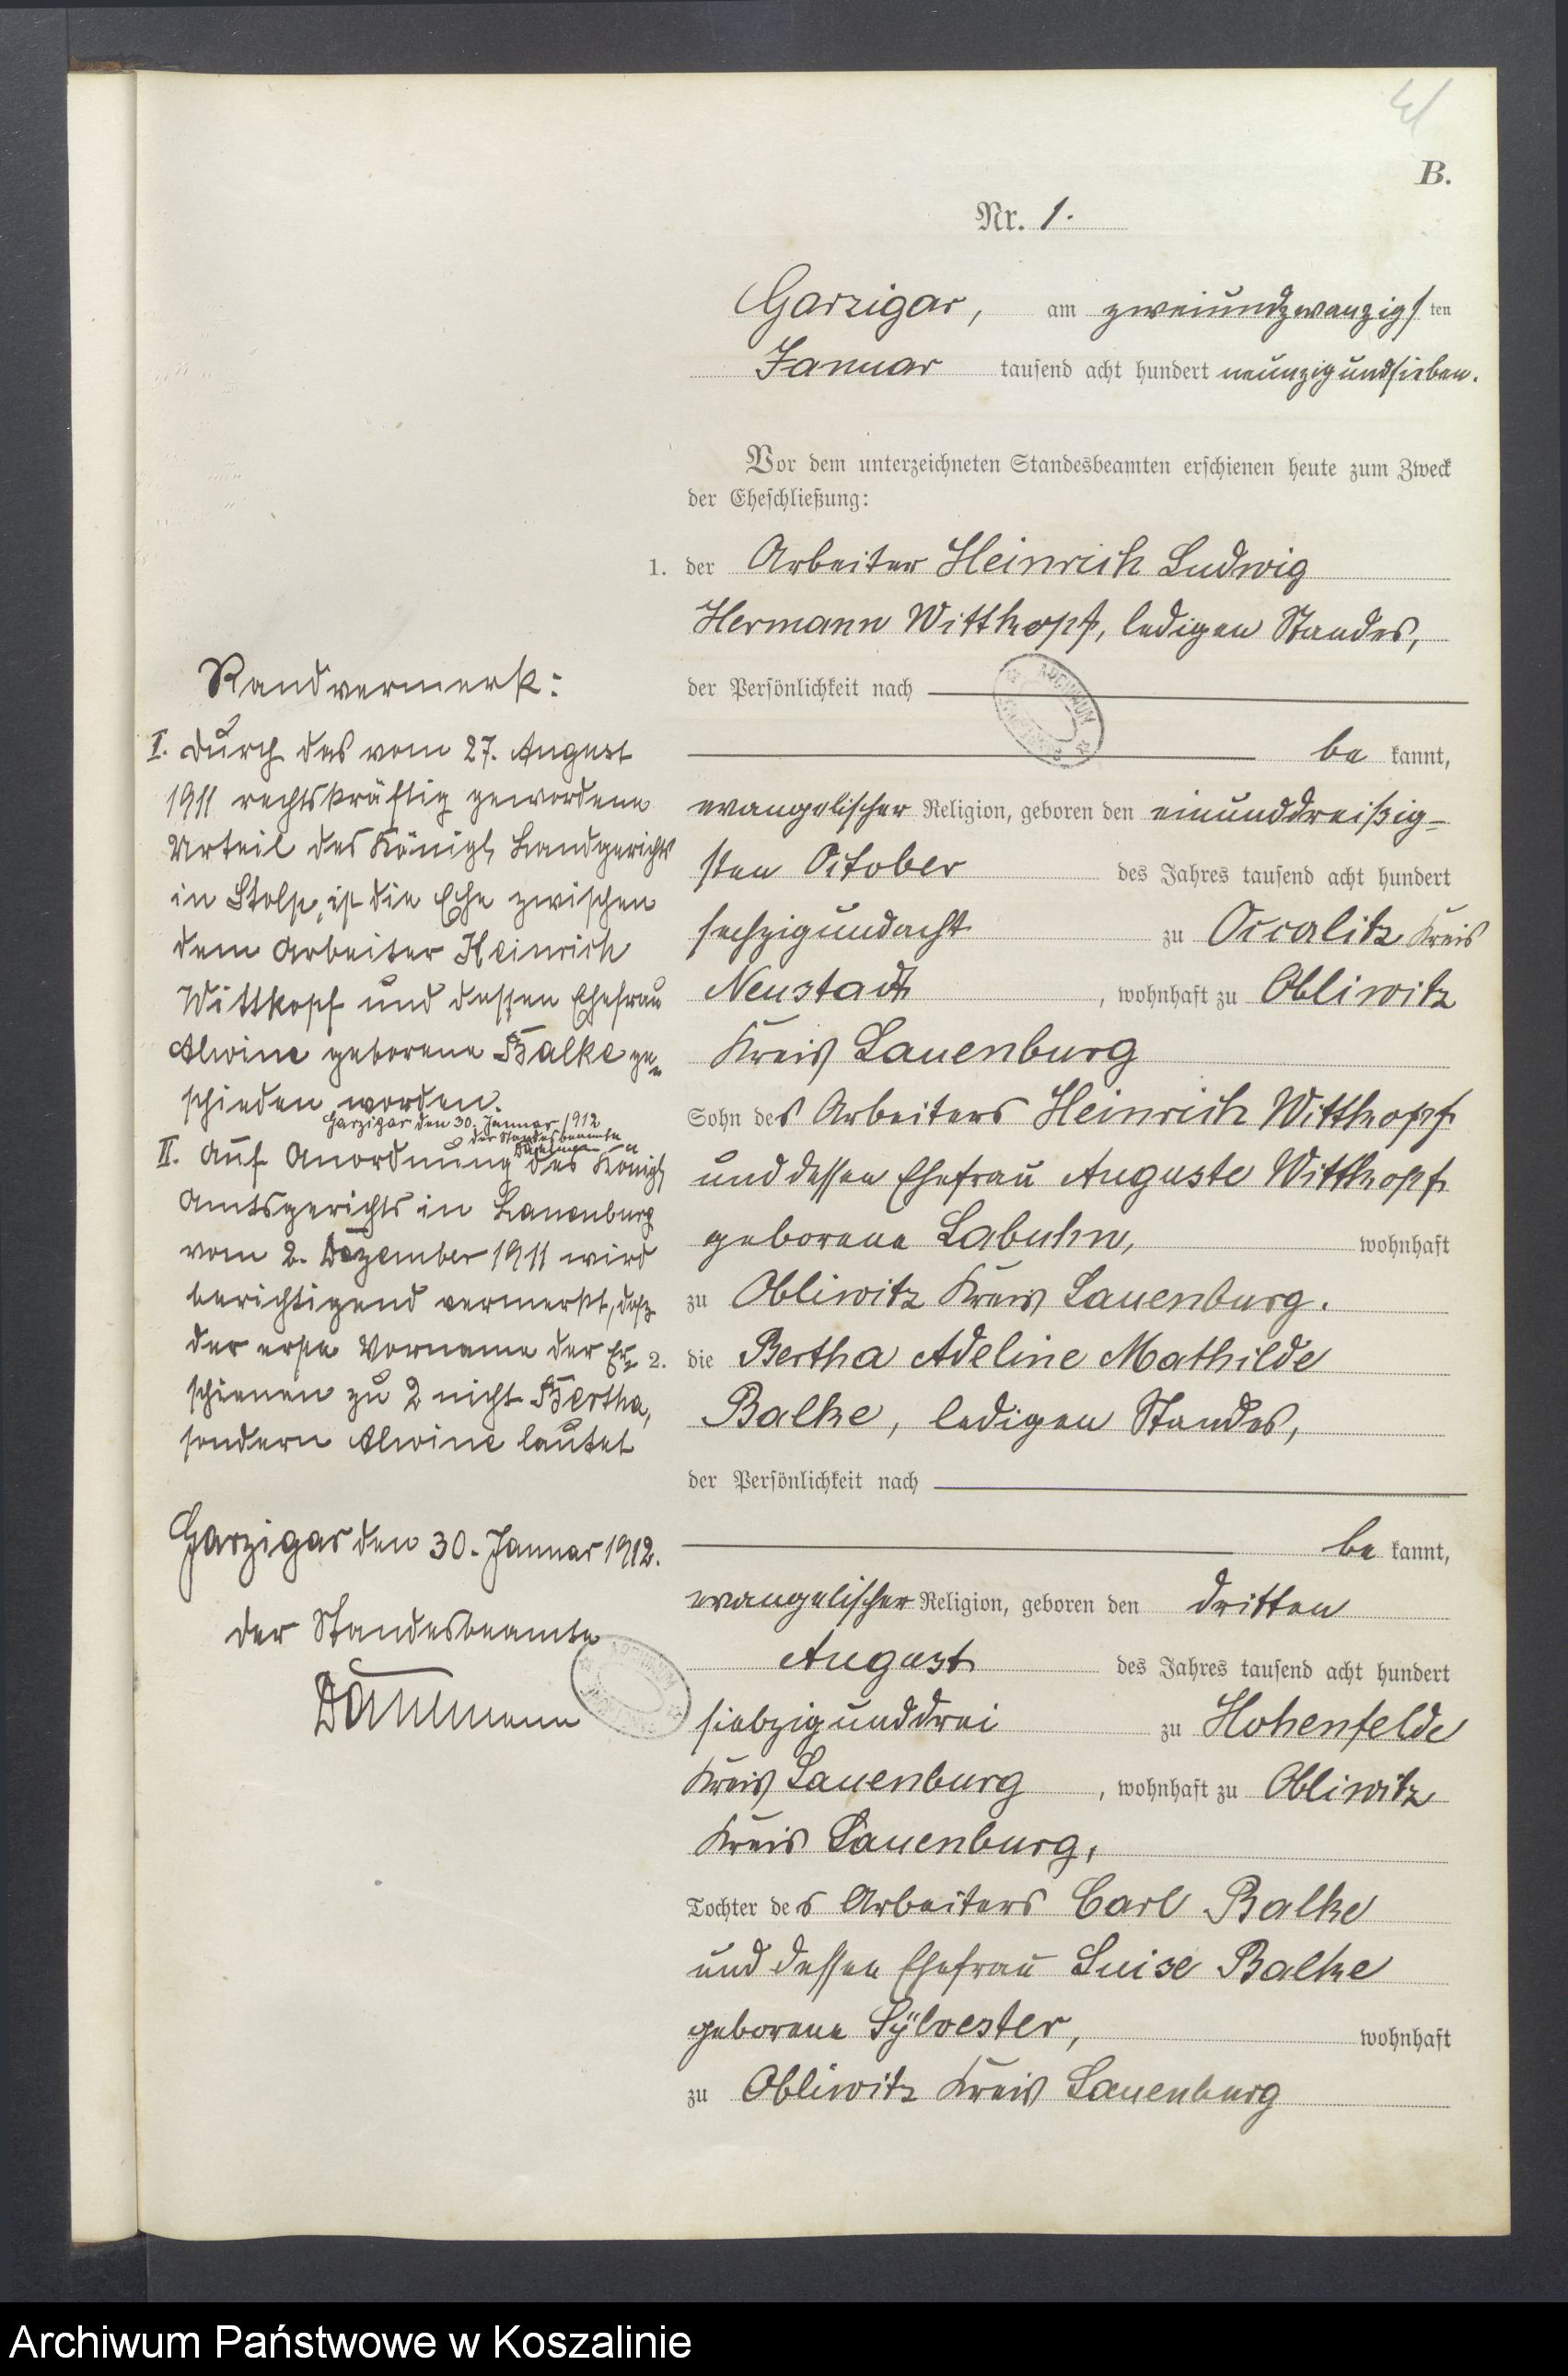 B.
Nr. 1.
Garzigar, am zweiundzwanzigsten
Januar tausend acht hundert neunzigundsieben.
Vor dem unterzeichneten Standesbeamten erschienen heute zum Zweck
der Eheschließung:
1. der Arbeiter Heinrich Ludwig
Hermann Witthopf, ledigen Standes,
der Persönlichkeit nach
be kannt,
evangelischer Religion, geboren den einunddreißig-
sten October des Jahres tausend acht hundert
sechzigundacht zu Occalitz Kreis
Neustadt, wohnhaft zu Obliwitz
Kreis Lauenburg
Sohn des Arbeiters Heinrich Witthopf
und dessen Ehefrau Auguste Witthopf
geborene Labuhn, wohnhaft
zu Obliwitz Kreis Lauenburg.
2. die Bertha Adeline Mathilde
Balke, ledigen Standes,
der Persönlichkeit nach
be kannt,
evangelischer Religion, geboren den dritten
August des Jahres tausend acht hundert
siebzigunddrei zu Hohenfelde
Kreis Lauenburg, wohnhaft zu Obliwitz
Kreis Lauenburg,
Tochter des Arbeiters Carl Balke
und dessen Ehefrau Luise Balke
geborene Sÿlvester, wohnhaft
zu Obliwitz Kreis Lauenburg
Randvermerk:
I. Durch das vom 27. August
1911 rechtskräftig gewordene
Urteil des Königl. Landgerichts
in Stolp, ist die Ehe zwischen
dem Arbeiter Heinrich
Wittkopf und dessen Ehefrau
Alwine geborene Balke ge=
schieden worden.
Garzigar den 30. Januar 1912
der Standesbeamte
II. Auf Anordnung des Königl.
Amtsgerichts in Lauenburg
vom 2. Dezember 1911 wird
berichtigend vermerkt, daß
der erste Vorname der Er=
schienen zu 2 nicht Bertha,
sondern Alwine lautet
Garzigar den 30. Januar 1912.
der Standesbeamte
ARCHIWUM
ARCHIWUM
Archiwum Państwowe w Koszalinie